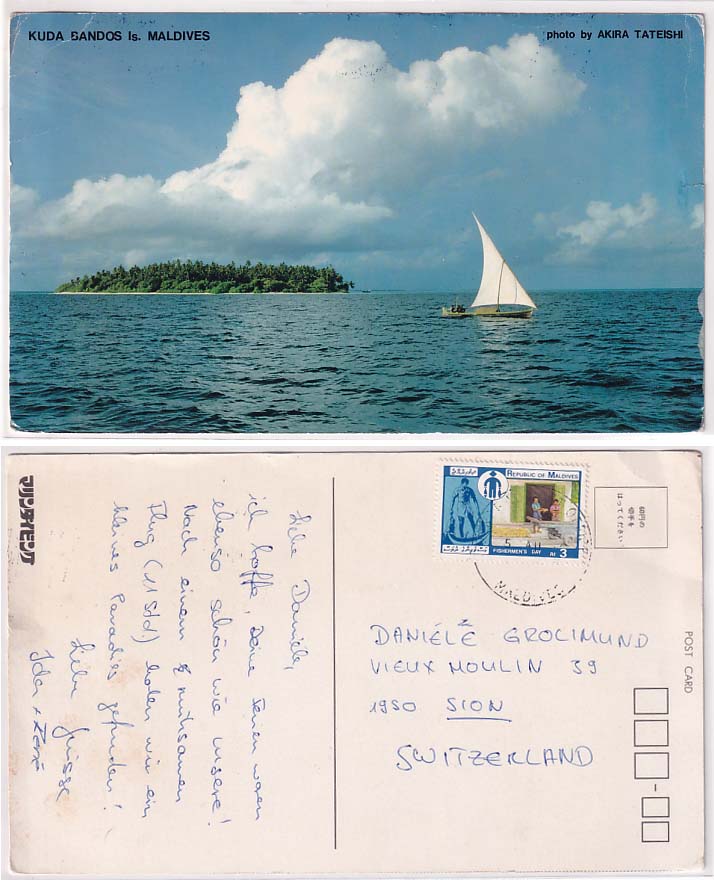 KUDA BANDOS Is. MALDIVES
photo by AKIRA TATEISHI
マリンダイビング
Liebe Danièle,
ich hoffe, Deine Ferien waren
ebenso schön wie unsere!
Nach einem mühsamen
Flug (11 Std!) haben wir ein
kleines Paradies gefunden!
Liebe Grüsse
Ida +
REPUBLIC OF MALDIVES
FISHERMEN'S DAY Rf 3
MALDIVES
60円の
切手を
はってください
POST CARD
DANIÉLE GROLIMUND
VIEUX MOULIN 39
1950 SION
SWITZERLAND